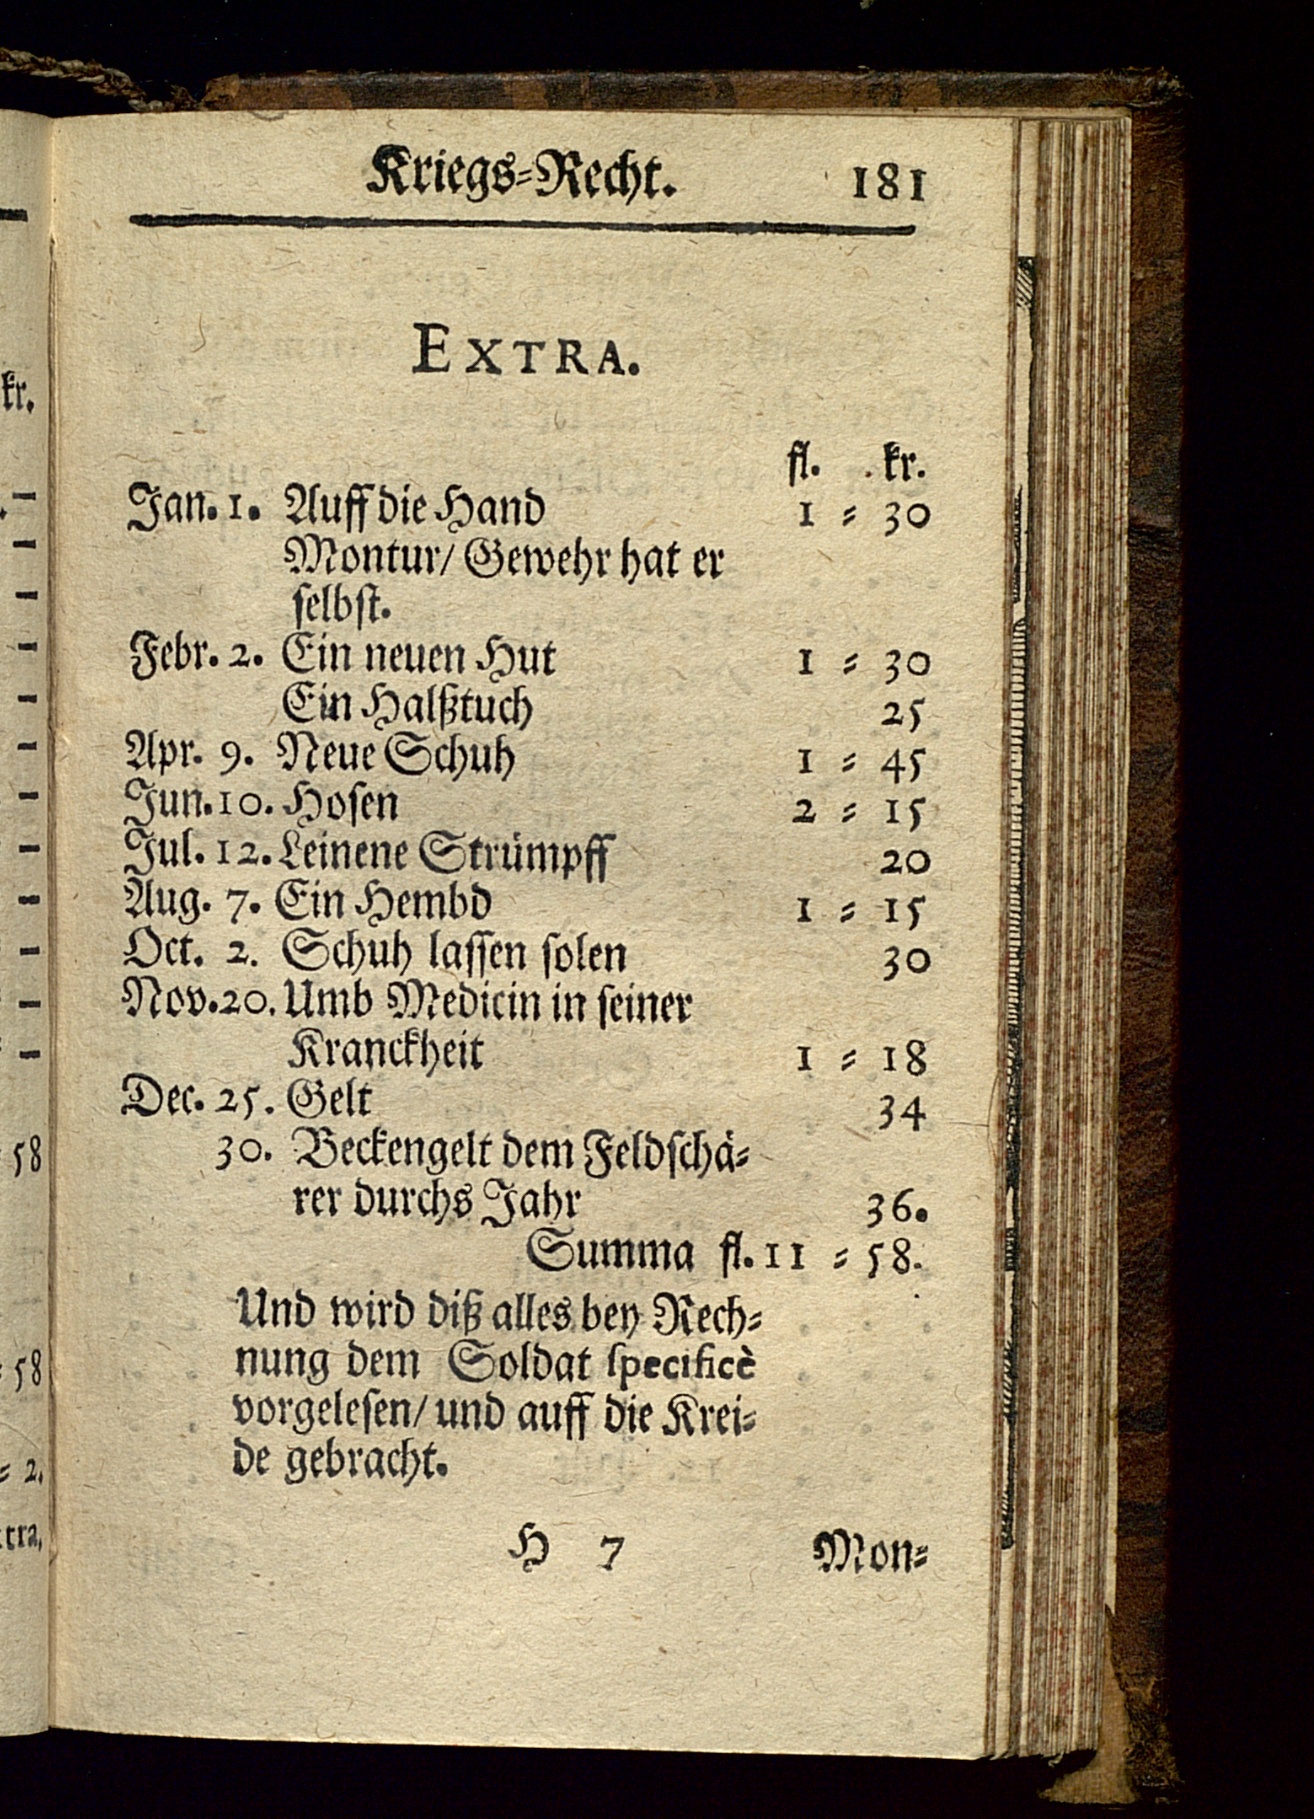 Kriegs=Recht. 181
EXTRA.
fl. kr.
Jan. 1. Auff die Hand 1 = 30
Montur/ Gewehr hat er
selbst.
Febr. 2. Ein neuen Hut 1 = 30
Ein Halßtuch 25
Apr. 9. Neue Schuh 1 = 45
Jun. 10. Hosen 2 = 15
Jul. 12. Leinene Strümpff 20
Aug. 7. Ein Hembd 1 = 15
Oct. 2. Schuh lassen solen 30
Nov. 20. Umb Medicin in seiner
Kranckheit 1 = 18
Dec. 25. Gelt 34
30. Beckengelt dem Feldschä=
rer durchs Jahr 36.
Summa fl. 11 = 58.
Und wird diß alles bey Rech=
nung dem Soldat specificè
vorgelesen/ und auff die Krei=
de gebracht.
H 7 Mon=
kr.
58
= 58
= 2.
tra,